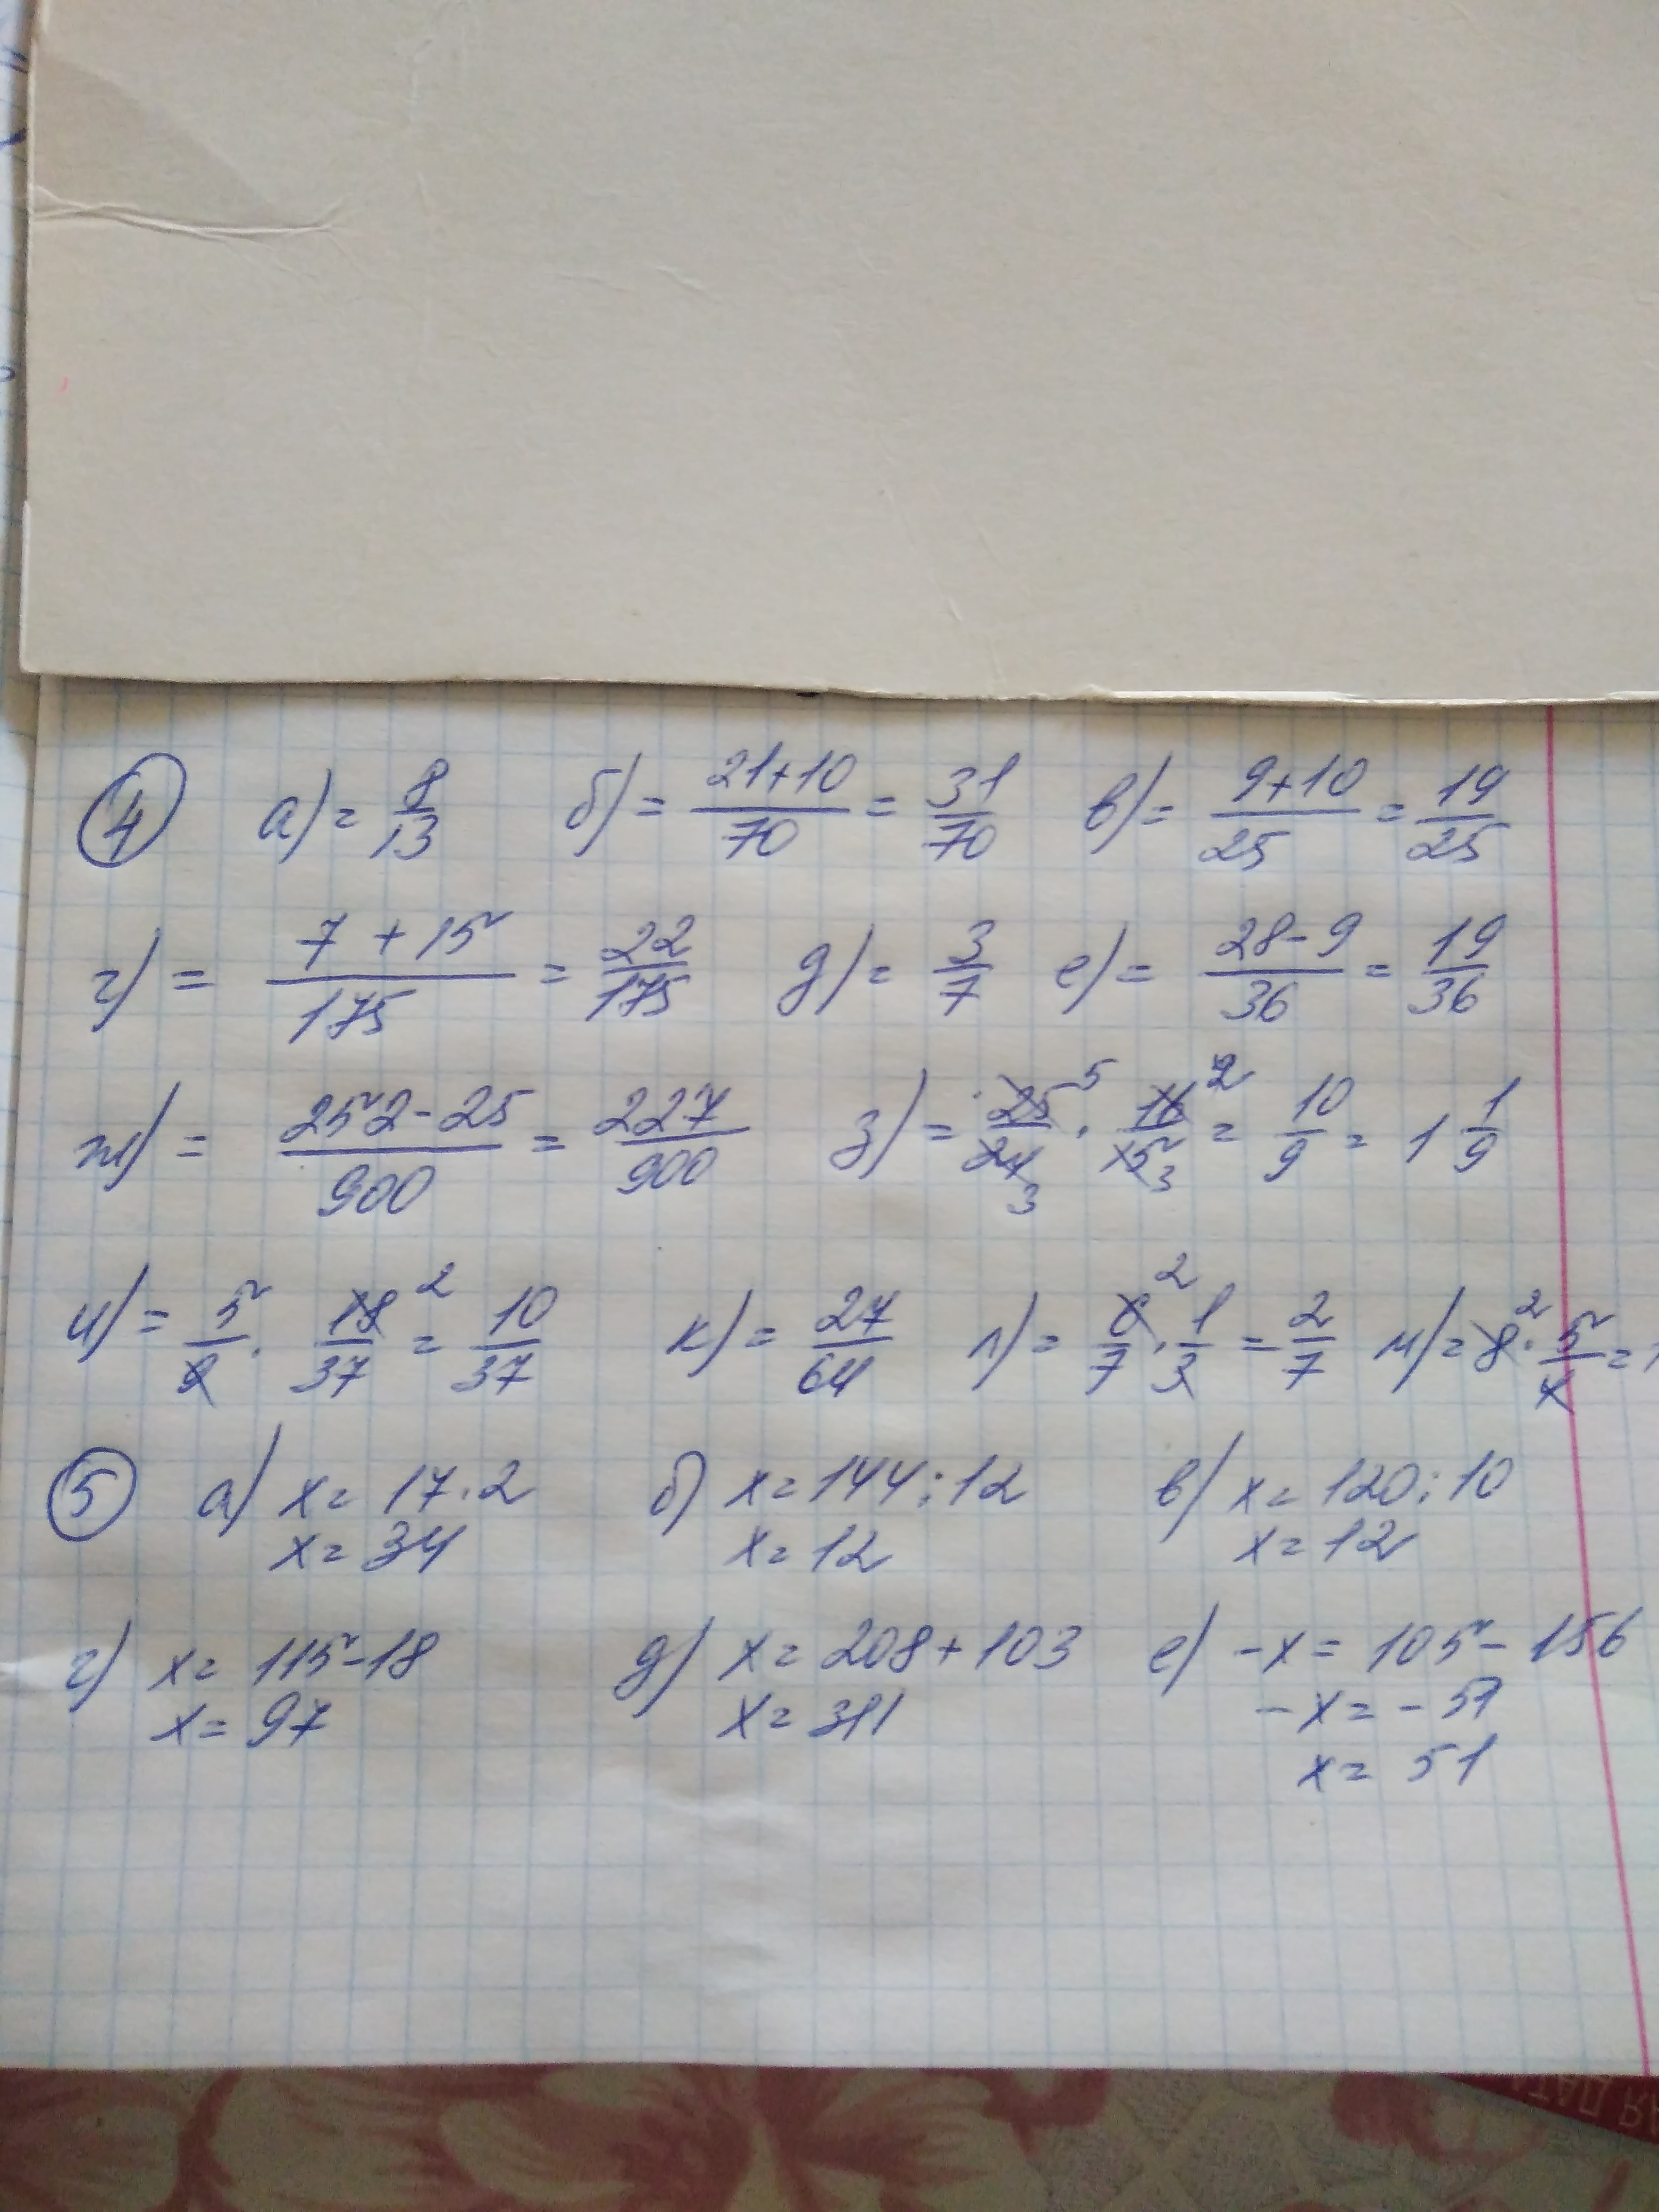 4 а) = 8/13 б) = (21+10)/70 = 31/70 в) = (9+10)/25 = 19/25
г) = (7 + 15)/175 = 22/175 д) = 3/7 е) = (28-9)/36 = 19/36
ж) = (252-25)/900 = 227/900 з) = 25 5/24 3 · 16 2/15 3 = 10/9 = 1 1/9
и) = 5/9 · 18 2/37 = 10/37 к) = 27/64 л) = 6 2/7 · 1/3 = 2/7 м) = 8 2 · 5/4 =
5 а) x = 17·2 б) x = 144:12 в) x = 120:10
x = 34 x = 12 x = 12
г) x = 115-18 д) x = 208+103 е) -x = 105-156
x = 97 x = 311 -x = -51
x = 51